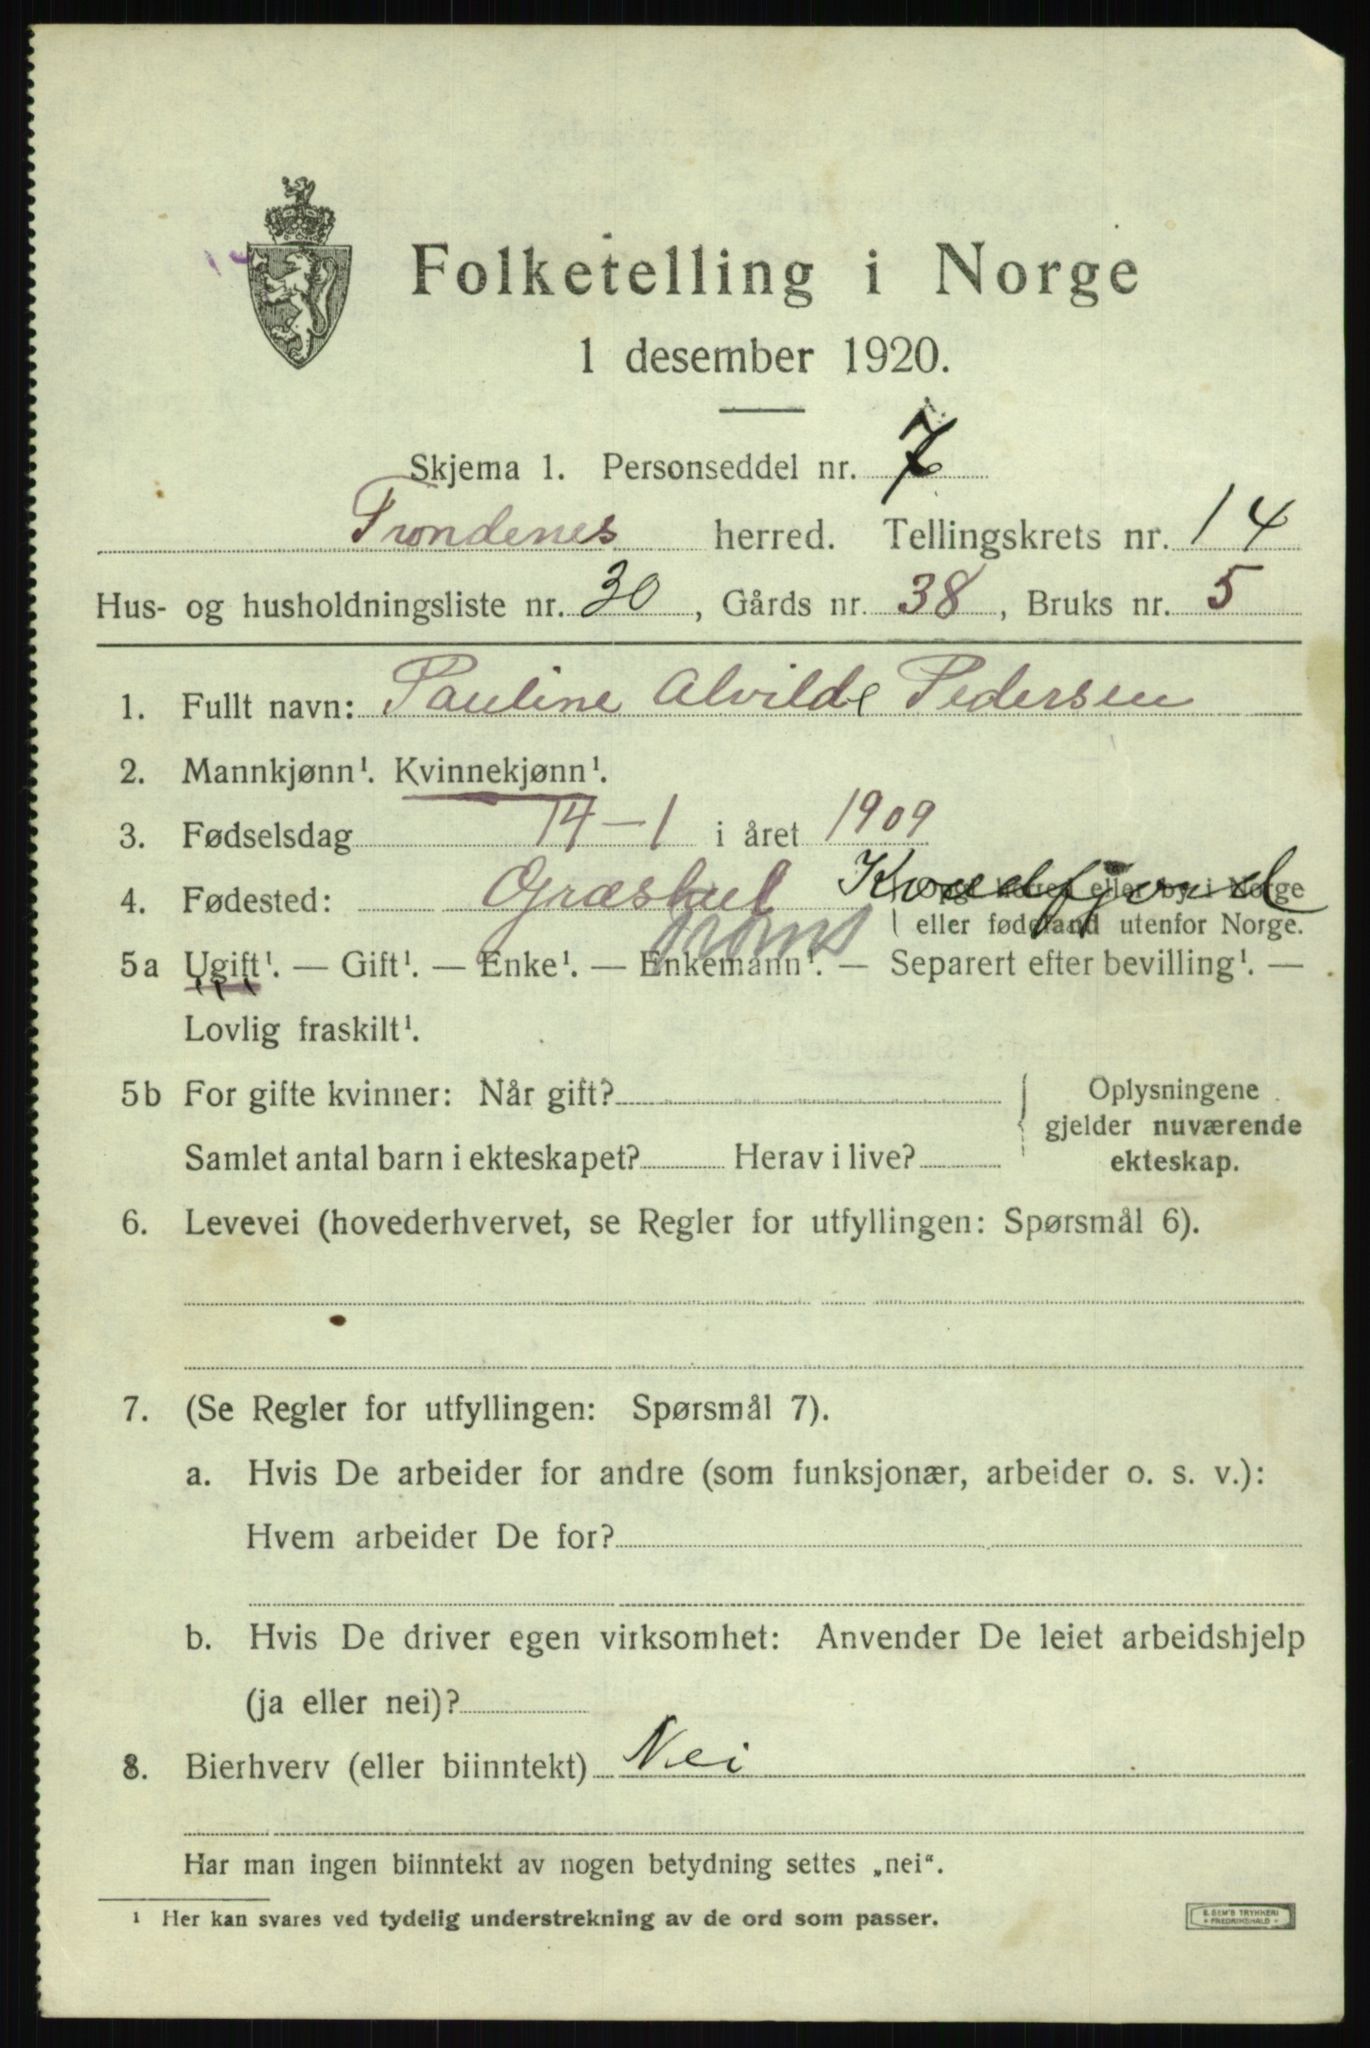 Folketelling i Norge
1 desember 1920.
Skjema 1. Personseddel nr. 7
Trondenes herred. Tellingskrets nr. 14
Hus- og husholdningsliste nr. 30, Gårds nr. 38, Bruks nr. 5
1. Fullt navn: Pauline Alvilde Pedersen
2. Mannkjønn¹. Kvinnekjønn¹.
3. Fødselsdag 14-1 i året 1909
4. Fødested: eller by i Norge
eller fødeland utenfor Norge.
Troms
5a Ugift¹. — Gift¹. — Enke¹. — Enkemann¹. — Separert efter bevilling¹. —
Lovlig fraskilt¹.
5b For gifte kvinner: Når gift?
Samlet antal barn i ekteskapet? Herav i live?
Oplysningene
gjelder nuværende
ekteskap.
6. Levevei (hovederhvervet, se Regler for utfyllingen: Spørsmål 6).
7. (Se Regler for utfyllingen: Spørsmål 7).
a. Hvis De arbeider for andre (som funksjonær, arbeider o. s. v.):
Hvem arbeider De for?
b. Hvis De driver egen virksomhet: Anvender De leiet arbeidshjelp
(ja eller nei)?
8. Bierhverv (eller biinntekt) Nei
Har man ingen biinntekt av nogen betydning settes „nei“.
¹ Her kan svares ved tydelig understrekning av de ord som passer.
E. SEM'S TRYKKERI
• FREDRIKSHALD •